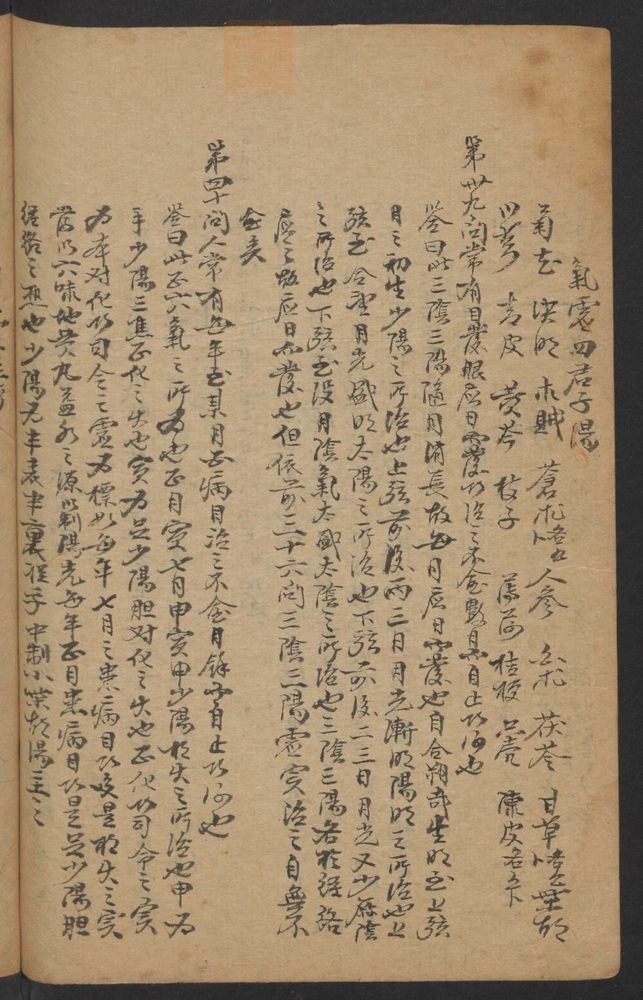 氣虛四君子湯
菊花 決明 木賊 蒼朮 人參 白朮 茯苓 甘草 柴胡
川芎 青皮 黃芩 枝子 薄荷 桔梗 陳皮各
第卅九問常有目發眼應日而發後治之不念數日而自止者何也
答曰此三陰三陽隨月消長故每月應日而發也自合朔而生明至上弦
月之初生少陽之所治也上弦前後兩三日月光漸明陽明之所治也上
弦至合望月光盛明太陽之所治也下弦前後二三日月光又少厥陰
之所治也下弦至沒月陰氣太盛太陰之所治也三陰三陽各於經絡
應之故應日而發也但依前二十六問三陰三陽虛實治之自無不
念矣
第四十問人常有每年至某月而病目治之不念月餘而自止者何也
答曰此正六氣之所為也正月寅七月申寅申少陽相火之所治也申為
手少陽三焦正化之火也寅為足少陽胆对化之火也正化者司令之實
为本对化者司令之虛为標如每年七月之患病目者是相火之實
當以六味地黃丸益水之源以制陽光每年正月患病目者是足少陽胆
經絡之 也少陽为半表半裏從乎中制小柴胡湯主之